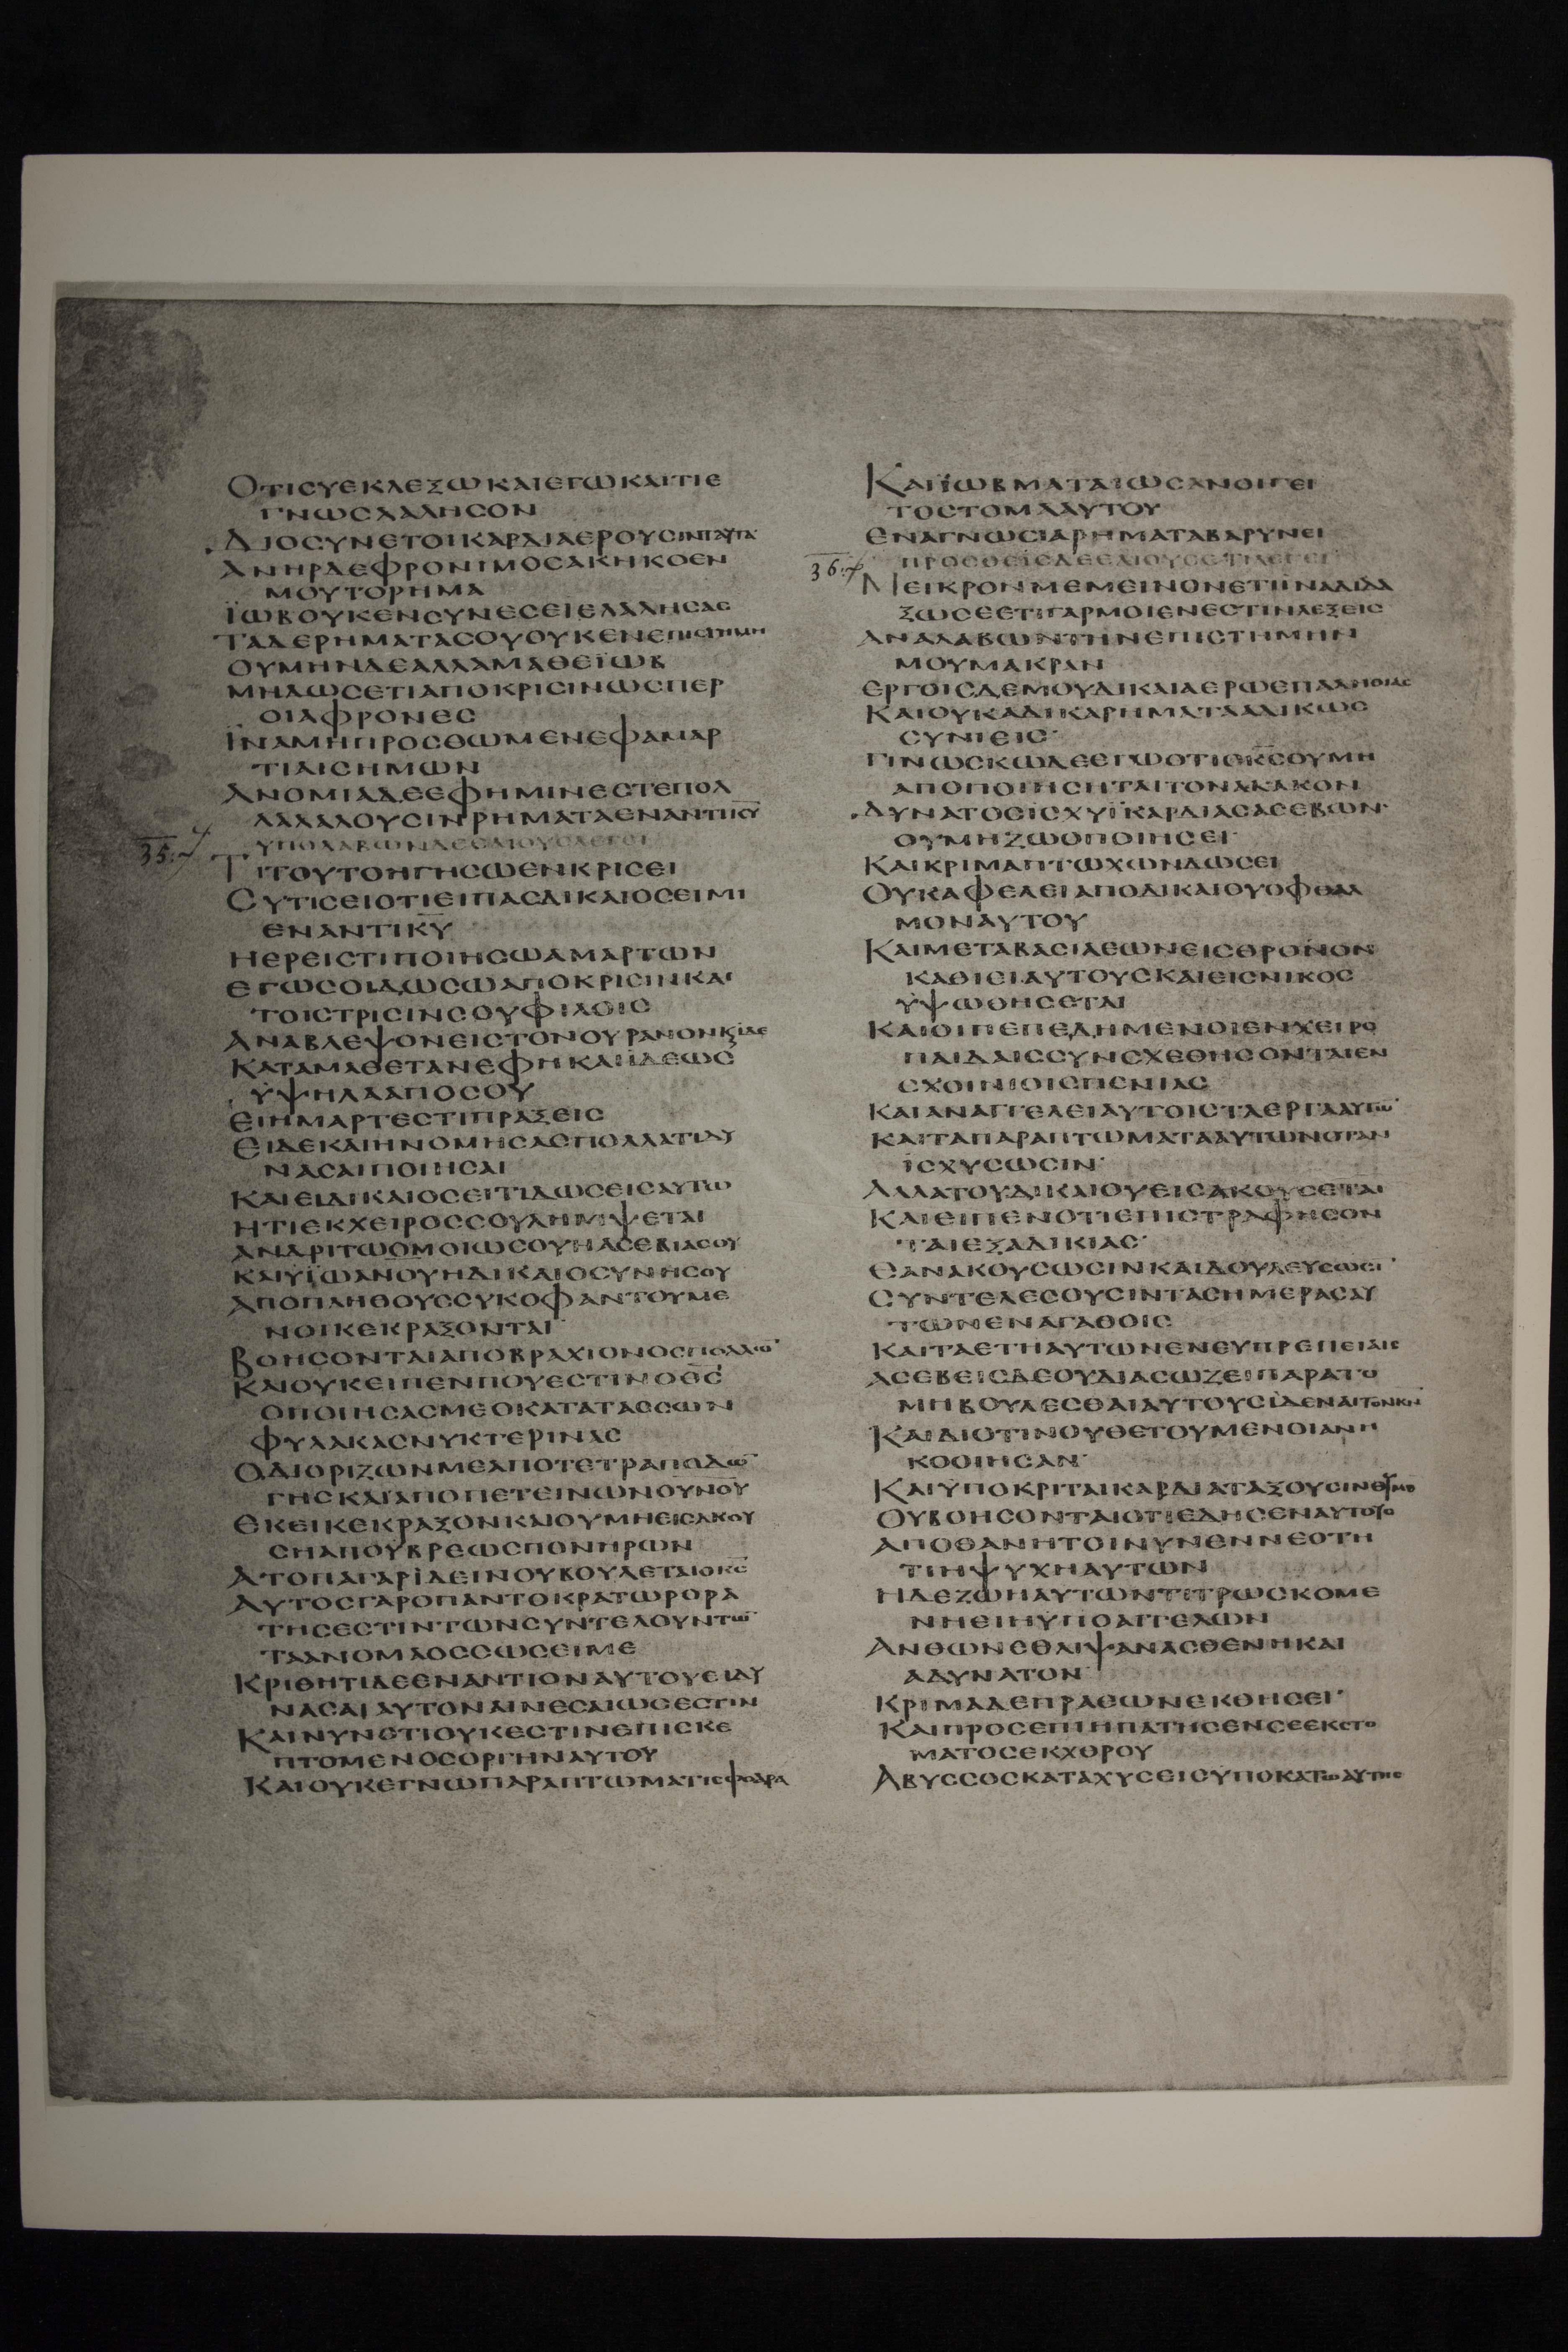 ΟΤΙϹΥΕΚΛΕΞΩΚΑΙΕΓΩΚΑΙΤΙΕ
ΓΝΩϹΛΑΛΗϹΟΝ
ΔΙΟϹΥΝΕΤΟΙΚΑΡΔΙΑΕΡΟΥϹΙΝΤΑΥΤΑ
ΑΝΗΡΔΕΦΡΟΝΙΜΟϹΑΚΗΚΟΕΝ
ΜΟΥΤΟΡΗΜΑ
ΪΩΒΟΥΚΕΝϹΥΝΕϹΕΙΕΛΑΛΗϹΑϹ
ΤΑΔΕΡΗΜΑΤΑϹΟΥΟΥΚΕΝΕΠΙϹΤΗΜΗ
ΟΥΜΗΝΔΕΑΛΛΑΜΑΘΕΪΩΒ
ΜΗΔΩϹΕΤΙΑΠΟΚΡΙϹΙΝΩϹΠΕΡ
ΟΙΑΦΡΟΝΕϹ
ΪΝΑΜΗΠΡΟϹΘΩΜΕΝΕΦΑΜΑΡ
ΤΙΑΙϹΗΜΩΝ
ΑΝΟΜΙΑΔΕΕΦΗΜΙΝΕϹΤΕΠΟΛ
ΛΑΛΑΛΟΥϹΙΝΡΗΜΑΤΑΕΝΑΝΤΙΚΥ
35
ΥΠΟΛΑΒΩΝΔΕΕΛΙΟΥϹΛΕΓΕΙ
ΤΙΤΟΥΤΟΗΓΗϹΩΕΝΚΡΙϹΕΙ
ϹΥΤΙϹΕΙΟΤΙΕΙΠΑϹΔΙΚΑΙΟϹΕΙΜΙ
ΕΝΑΝΤΙΚΥ
ΗΕΡΕΙϹΤΙΠΟΙΗϹΩΑΜΑΡΤΩΝ
ΕΓΩϹΟΙΔΩϹΩΑΠΟΚΡΙϹΙΝΚΑΙ
ΤΟΙϹΤΡΙϹΙΝϹΟΥΦΙΛΟΙϹ
ΑΝΑΒΛΕΨΟΝΕΙϹΤΟΝΟΥΡΑΝΟΝΚΙΔΕ
ΚΑΤΑΜΑΘΕΤΑΝΕΦΗΚΑΙΪΔΕΩϹ
ΥΨΗΛΑΑΠΟϹΟΥ
ΕΙΗΜΑΡΤΕϹΤΙΠΡΑΞΕΙϹ
ΕΙΔΕΚΑΙΗΝΟΜΗϹΑϹΠΟΛΛΑΤΙΔΥ
ΝΑϹΑΙΠΟΙΗϹΑΙ
ΚΑΙΕΙΔΙΚΑΙΟϹΕΙΤΙΔΩϹΕΙϹΑΥΤΩ
ΗΤΙΕΚΧΕΙΡΟϹϹΟΥΛΗΜΨΕΤΑΙ
ΑΝΔΡΙΤΩΟΜΟΙΩϹΟΥΗΑϹΕΒΙΑϹΟΥ
ΚΑΙΥΪΩΑΝΟΥΗΔΙΚΑΙΟϹΥΝΗϹΟΥ
ΑΠΟΠΛΗΘΟΥϹϹΥΚΟΦΑΝΤΟΥΜΕ
ΝΟΙΚΕΚΡΑΞΟΝΤΑΙ
ΒΟΗϹΟΝΤΑΙΑΠΟΒΡΑΧΙΟΝΟϹΠΟΛΛΩ
ΚΑΙΟΥΚΕΙΠΕΝΠΟΥΕϹΤΙΝΟΘϹ
ΟΠΟΙΗϹΑϹΜΕΟΚΑΤΑΤΑϹϹΩΝ
ΦΥΛΑΚΑϹΝΥΚΤΕΡΙΝΑϹ
ΟΔΙΟΡΙΖΩΝΜΕΑΠΟΤΕΤΡΑΠΟΔΩ
ΓΗϹΚΑΙΑΠΟΠΕΤΕΙΝΩΝΟΥΝΟΥ
ΕΚΕΙΚΕΚΡΑΞΟΝΚΑΙΟΥΜΗΕΙϹΑΚΟΥ
ϹΗΑΠΟΥΒΡΕΩϹΠΟΝΗΡΩΝ
ΑΤΟΠΑΓΑΡΪΔΕΙΝΟΥΒΟΥΛΕΤΑΙΟΚϹ
ΑΥΤΟϹΓΑΡΟΠΑΝΤΟΚΡΑΤΩΡΟΡΑ
ΤΗϹΕϹΤΙΝΤΩΝϹΥΝΤΕΛΟΥΝΤΩ
ΤΑΑΝΟΜΑΟϹϹΩϹΕΙΜΕ
ΚΡΙΘΗΤΙΔΕΕΝΑΝΤΙΟΝΑΥΤΟΥΕΙΔΥ
ΝΑϹΑΙΑΥΤΟΝΑΙΝΕϹΑΙΩϹΕϹΤΙΝ
ΚΑΙΝΥΝΟΤΙΟΥΚΕϹΤΙΝΕΠΙϹΚΕ
ΠΤΟΜΕΝΟϹΟΡΓΗΝΑΥΤΟΥ
ΚΑΙΟΥΚΕΓΝΩΠΑΡΑΠΤΩΜΑΤΙϹΦΟΔΡΑ
ΚΑΙΪΩΒΜΑΤΑΙΩϹΑΝΟΙΓΕΙ
ΤΟϹΤΟΜΑΑΥΤΟΥ
ΕΝΑΓΝΩϹΙΑΡΗΜΑΤΑΒΑΡΥΝΕΙ
36
ΠΡΟϹΘΕΙϹΔΕΕΛΙΟΥϹΕΤΙΛΕΓΕΙ
ΜΕΙΚΡΟΝΜΕΜΕΙΝΟΝΕΤΙΪΝΑΔΙΔΑ
ΞΩϹΕΕΤΙΓΑΡΜΟΙΕΝΕϹΤΙΝΛΕΞΕΙϹ
ΑΝΑΛΑΒΩΝΤΗΝΕΠΙϹΤΗΜΗΝ
ΜΟΥΜΑΚΡΑΝ
ΕΡΓΟΙϹΔΕΜΟΥΔΙΚΑΙΑΕΡΩΕΠΑΛΗΘΙΑϹ
ΚΑΙΟΥΚΑΔΙΚΑΡΗΜΑΤΑΑΔΙΚΩϹ
ϹΥΝΙΕΙϹ
ΓΙΝΩϹΚΩΔΕΕΓΩΟΤΙΟΚϹΟΥΜΗ
ΑΠΟΠΟΙΗϹΗΤΑΙΤΟΝΑΚΑΚΟΝ
ΔΥΝΑΤΟϹΙϹΧΥΪΚΑΡΔΙΑϹΑϹΕΒΩΝ
ΟΥΜΗΖΩΟΠΟΙΗϹΕΙ
ΚΑΙΚΡΙΜΑΠΤΩΧΩΝΔΩϹΕΙ
ΟΥΚΑΦΕΛΕΙΑΠΟΔΙΚΑΙΟΥΟΦΘΑΛ
ΜΟΝΑΥΤΟΥ
ΚΑΙΜΕΤΑΒΑϹΙΛΕΩΝΕΙϹΘΡΟΝΟΝ
ΚΑΘΙΕΙΑΥΤΟΥϹΚΑΙΕΙϹΝΙΚΟϹ
ΥΨΩΘΗϹΕΤΑΙ
ΚΑΙΟΙΠΕΠΕΔΗΜΕΝΟΙΕΝΧΕΙΡΟ
ΠΑΙΔΑΙϹϹΥΝϹΧΕΘΗϹΟΝΤΑΙΕΝ
ϹΧΟΙΝΙΟΙϹΠΕΝΙΑϹ
ΚΑΙΑΝΑΓΓΕΛΕΙΑΥΤΟΙϹΤΑΕΡΓΑΑΥΤΩ
ΚΑΙΤΑΠΑΡΑΠΤΩΜΑΤΑΑΥΤΩΝΟΤΑΝ
ΪϹΧΥϹΩϹΙΝ
ΑΛΛΑΤΟΥΔΙΚΑΙΟΥΕΙϹΑΚΟΥϹΕΤΑΙ
ΚΑΙΕΙΠΕΝΟΤΙΕΠΙϹΤΡΑΦΗϹΟΝ
ΤΑΙΕΞΑΔΙΚΙΑϹ
ΕΑΝΑΚΟΥϹΩϹΙΝΚΑΙΔΟΥΛΕΥϹΩϹΙ
ϹΥΝΤΕΛΕϹΟΥϹΙΝΤΑϹΗΜΕΡΑϹΑΥ
ΤΩΝΕΝΑΓΑΘΟΙϹ
ΚΑΙΤΑΕΤΗΑΥΤΩΝΕΝΕΥΠΡΕΠΕΙΑΙϹ
ΑϹΕΒΕΙϹΔΕΟΥΔΙΑϹΩΖΕΙΠΑΡΑΤΟ
ΜΗΒΟΥΛΕϹΘΑΙΑΥΤΟΥϹΙΔΕΝΑΙΤΟΝΚΝ
ΚΑΙΔΙΟΤΙΝΟΥΘΕΤΟΥΜΕΝΟΙΑΝΗ
ΚΟΟΙΗϹΑΝ
ΚΑΙΥΠΟΚΡΙΤΑΙΚΑΡΔΙΑΤΑΞΟΥϹΙΝΘΥΜΟ
ΟΥΒΟΗϹΟΝΤΑΙΟΤΙΕΔΗϹΕΝΑΥΤΟΥϹ
ΑΠΟΘΑΝΗΤΟΙΝΥΝΕΝΝΕΟΤΗ
ΤΙΗΨΥΧΗΑΥΤΩΝ
ΗΔΕΖΩΗΑΥΤΩΝΤΙΤΡΩϹΚΟΜΕ
ΝΗΕΙΗΥΠΟΑΓΓΕΛΩΝ
ΑΝΘΩΝΕΘΛΙΨΑΝΑϹΘΕΝΗΚΑΙ
ΑΔΥΝΑΤΟΝ
ΚΡΙΜΑΔΕΠΡΑΕΩΝΕΚΘΗϹΕΙ
ΚΑΙΠΡΟϹΕΠΙΗΠΑΤΗϹΕΝϹΕΕΚϹΤΟ
ΜΑΤΟϹΕΚΧΘΡΟΥ
ΑΒΥϹϹΟϹΚΑΤΑΧΥϹΕΙϹΥΠΟΚΑΤΩΑΥΤΗϹ